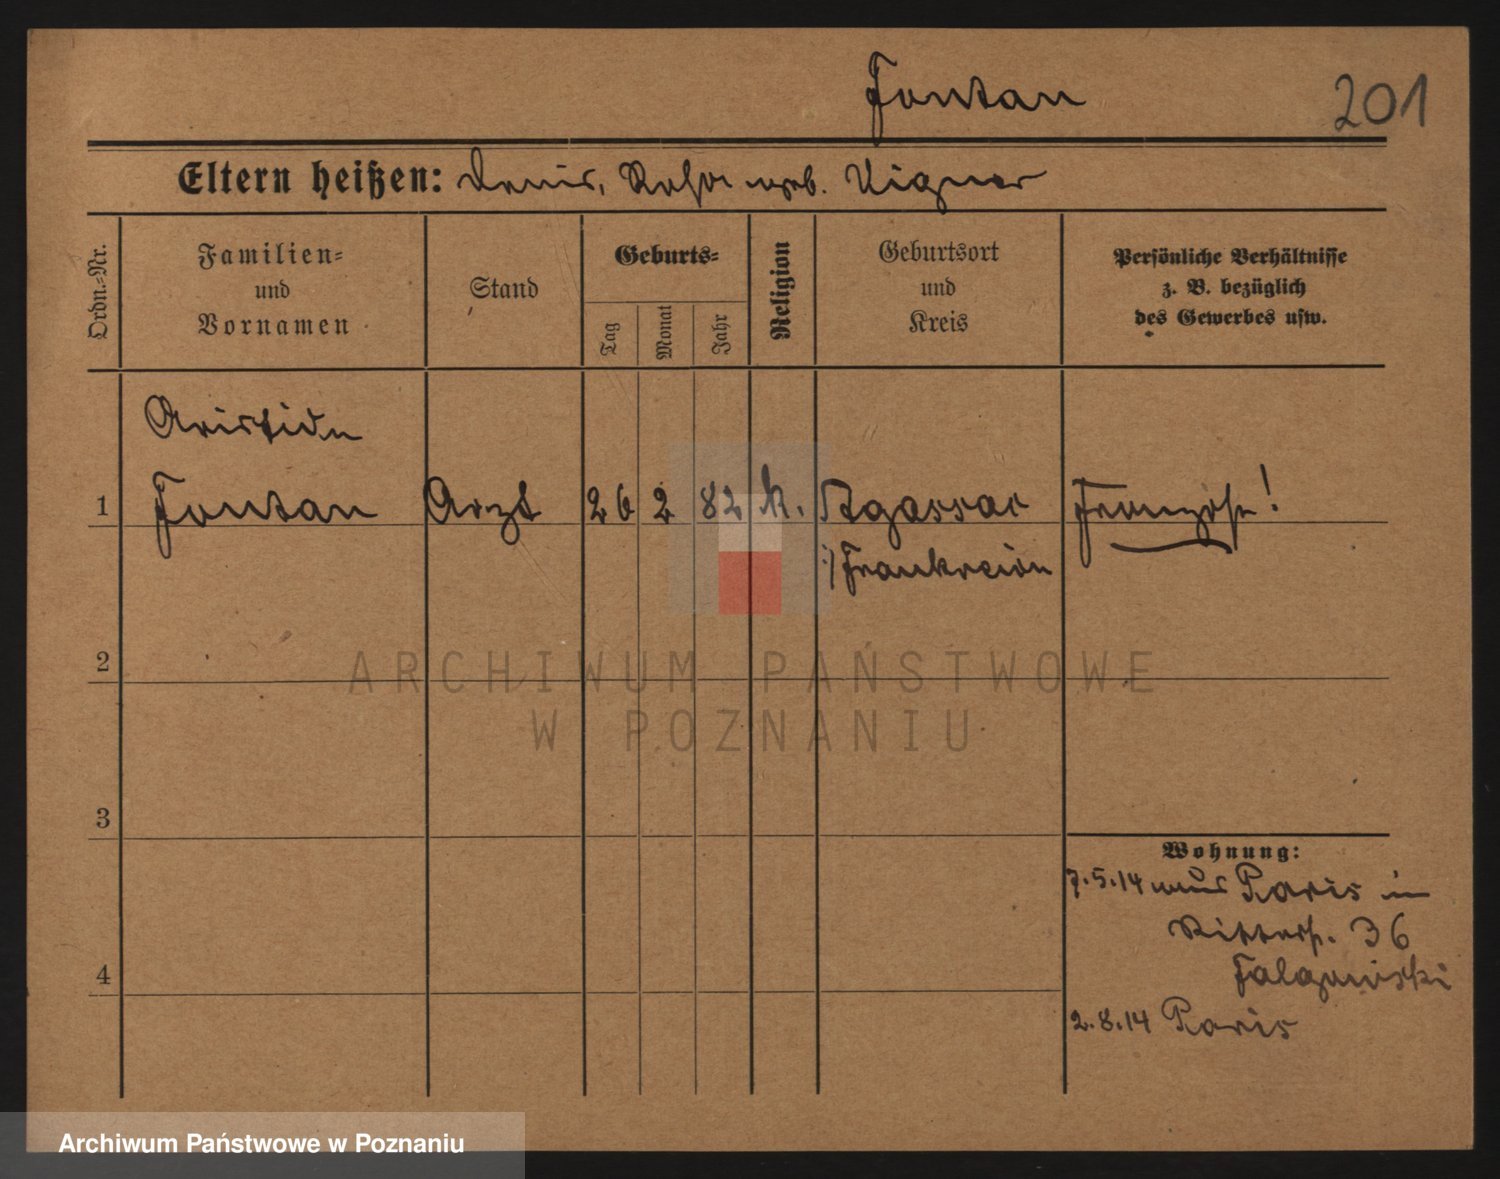 Fontan 201
Eltern heißen: Denis, Rosa geb. Vignes
Ordn.-Nr.
Familien-
und
Vornamen
Stand
Geburts-
Tag
Monat
Jahr
Religion
Geburtsort
und
Kreis
Persönliche Verhältnisse
z. B. bezüglich
des Gewerbes usw.
Aristide
1 Fontan Arzt 26 2 82 k. Agassac Franzose!
i/Frankreich
2
ARCHIWUM PAŃSTWOWE
W POZNANIU
3
Wohnung:
7.5.14 aus Paris in
Ritterst. 36
4
2.8.14 Paris
Archiwum Państwowe w Poznaniu